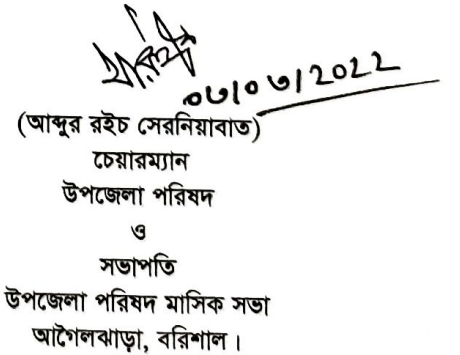 ০৩/০৩/2022
(আব্দুর রইচ সেরনিয়াবাত)
চেয়ারম্যান
উপজেলা পরিষদ
ও
সভাপতি
উপজেলা পরিষদ মাসিক সভা
আগৈলঝাড়া, বরিশাল।